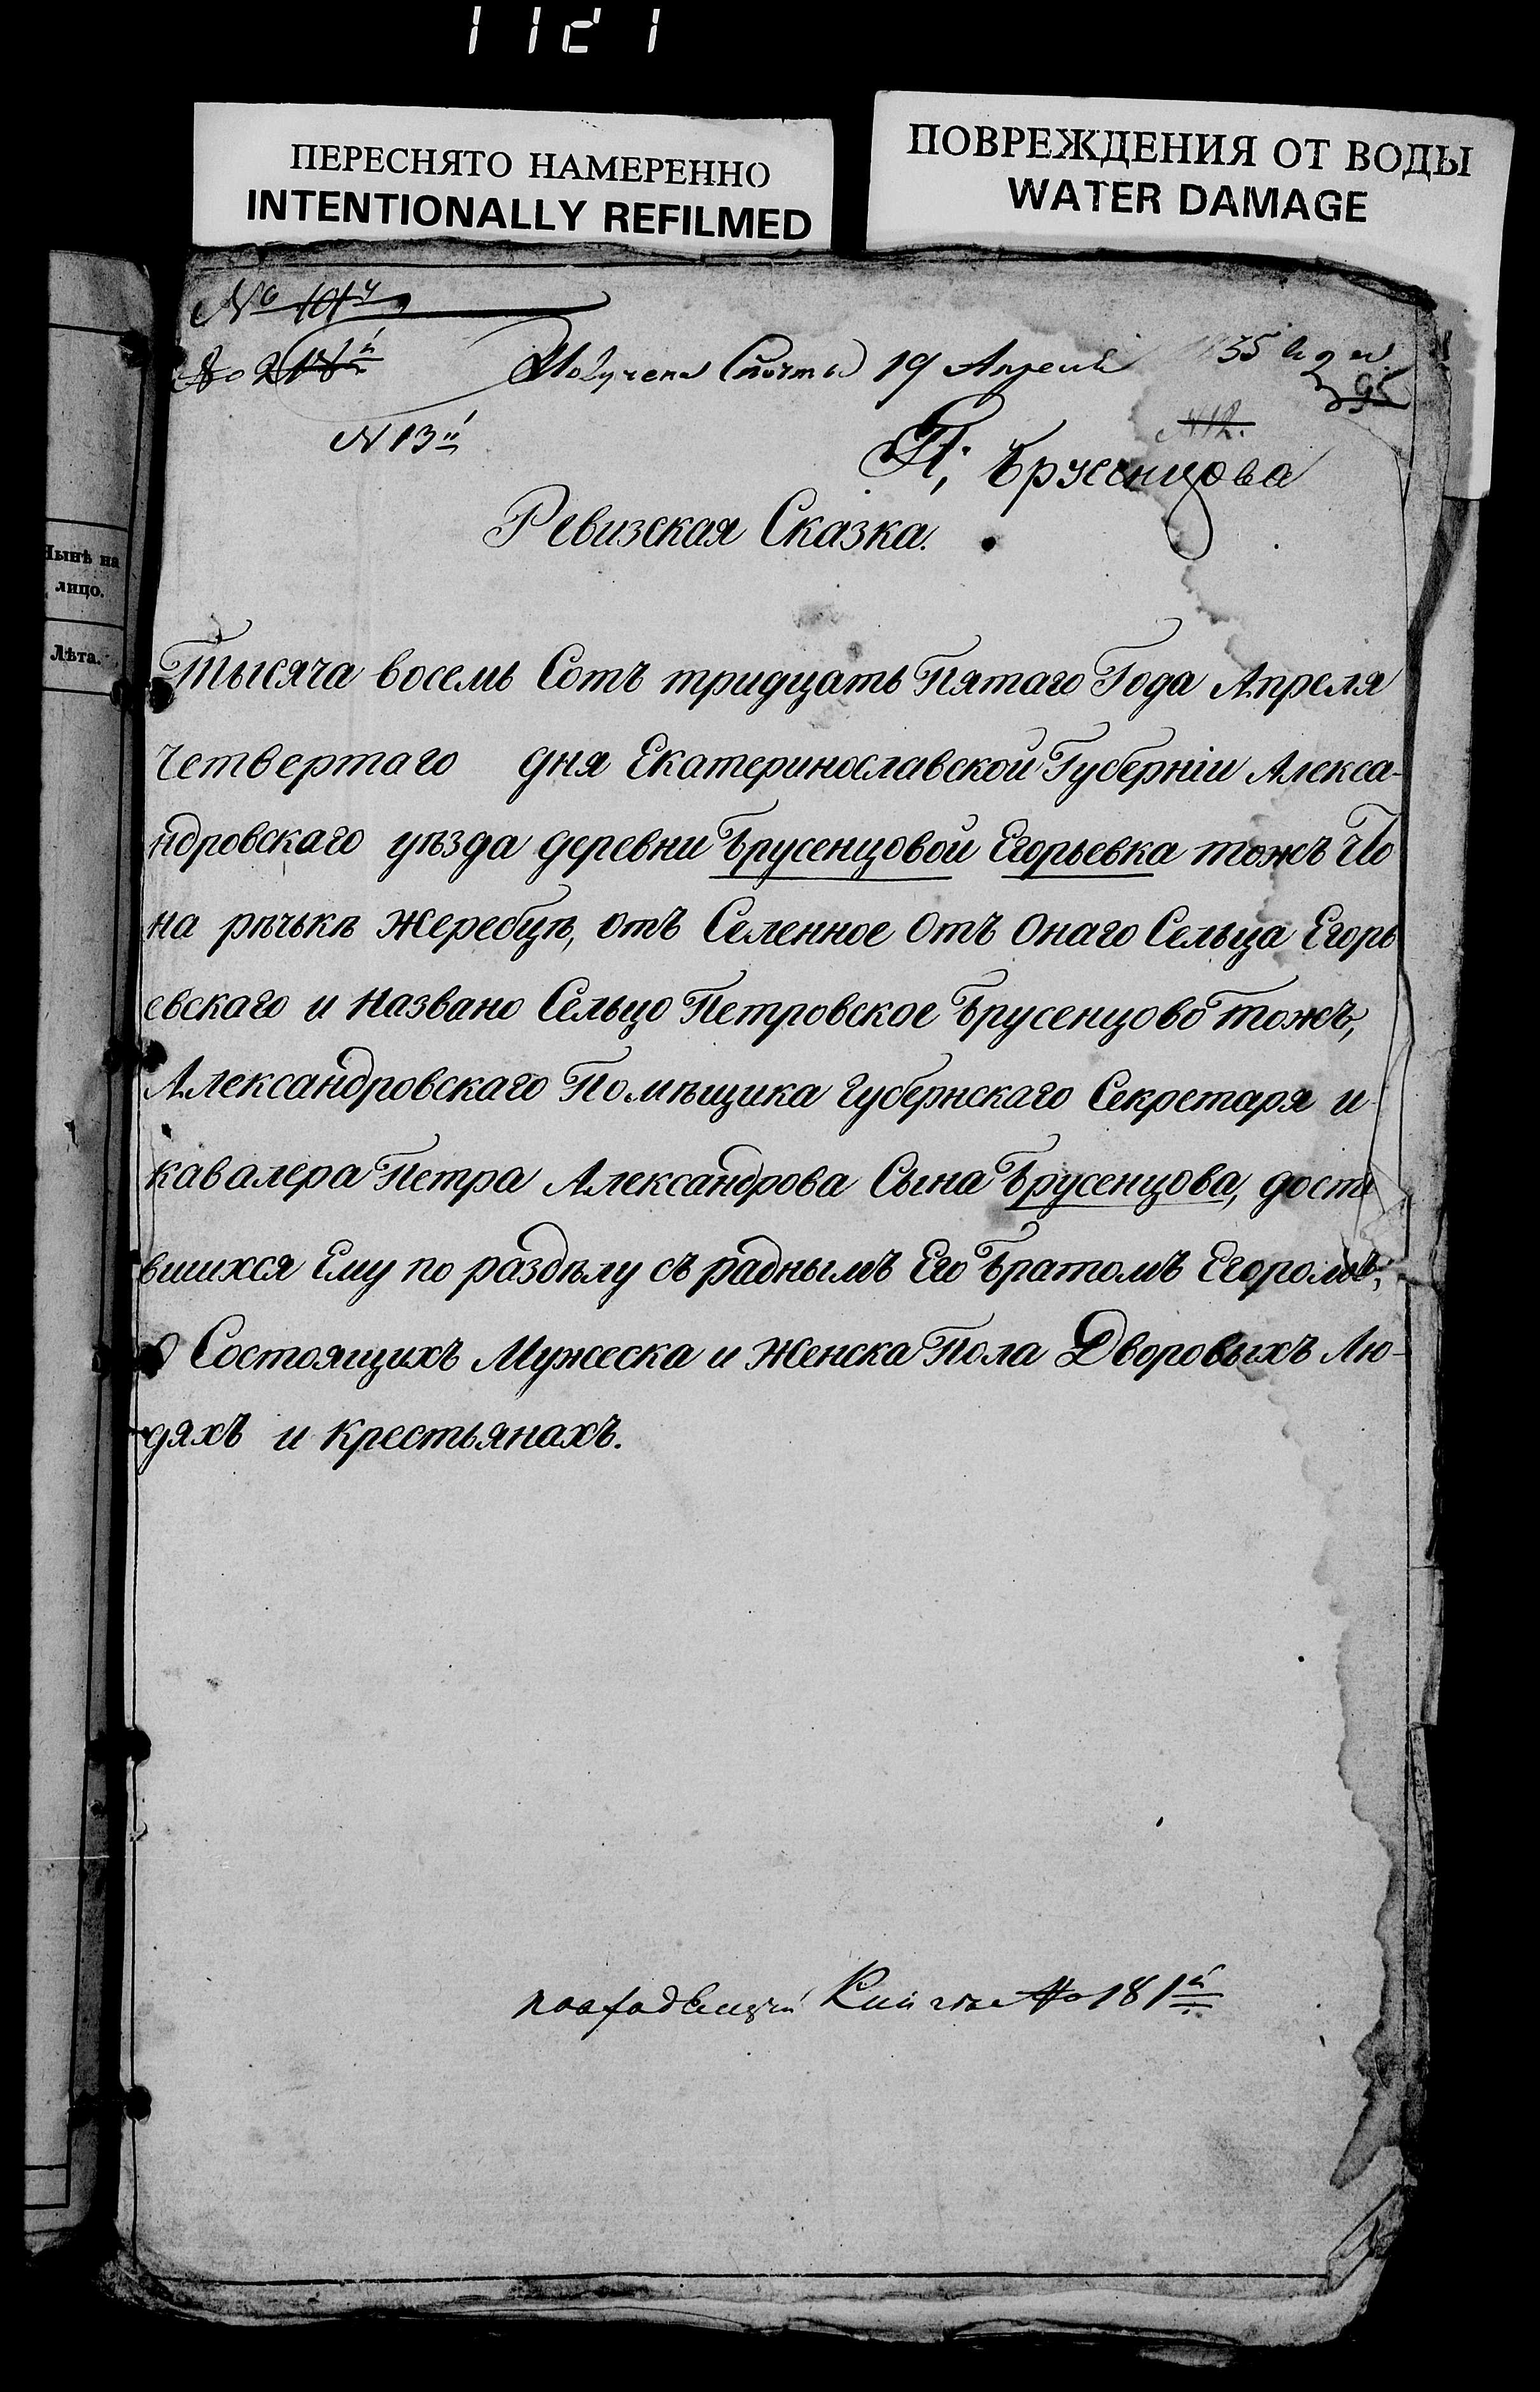 1121
ПЕРЕСНЯТО НАМЕРЕННО
INTENTIONALLY REFILMED
ПОВРЕЖДЕНИЯ ОТ ВОДЫ
WATER DAMAGE
Получена с почты 19 Апреля 1835 года
95
N 12.
N 13й
П. Брусенцова
Ревизская Сказка.
Нынѣ на
лицо.
Лѣта.
Тысяча восемь Сотъ тридцать Пятаго Года Апреля
четвертаго дня Екатеринославской Губерніи Алекса-
ндровскаго уѣзда деревни Брусенцовой Егорьевка тожъ что
на рѣчькѣ Жеребцѣ, отъ Селенное отъ онаго Сельца Егорь
евскаго и Названо Сельцо Петровское Брусенцово тожъ,
Александровскаго Помѣщика Губернскаго Секретаря и
кавалера Петра Александрова Сына Брусенцова, доста
вшихся Ему по раздѣлу съ раднымъ Его Братомъ Егоромъ,
О Состоящихъ Мужеска и Женска Пола Дворовыхъ Лю-
дяхъ и крестьянахъ.
Книге No 181й